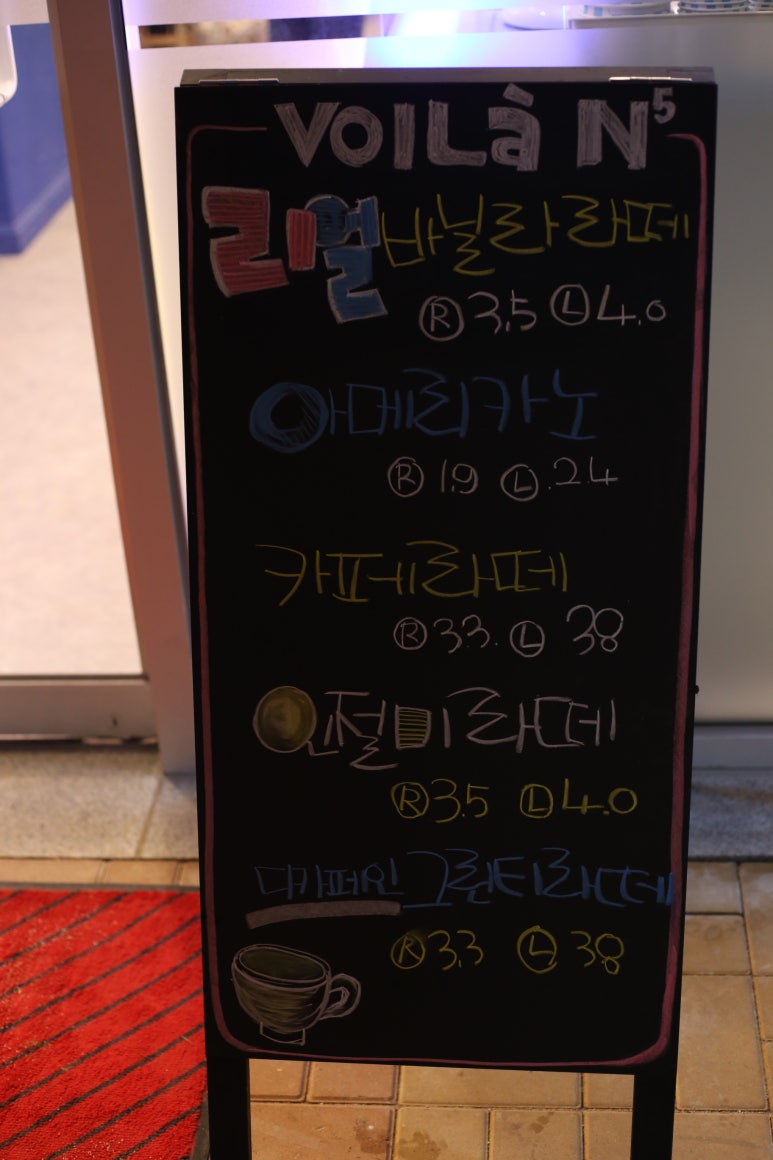 VOILà N5
리얼 바닐라라떼
Ⓡ 3.5 Ⓛ 4.0
아메리카노
Ⓡ 1.9 Ⓛ 2.4
카페라떼
Ⓡ 3.3. Ⓛ 3.8
인절미라떼
Ⓡ 3.5 Ⓛ 4.0
디카페인 그린티라떼
Ⓡ 3.3 Ⓛ 3.8